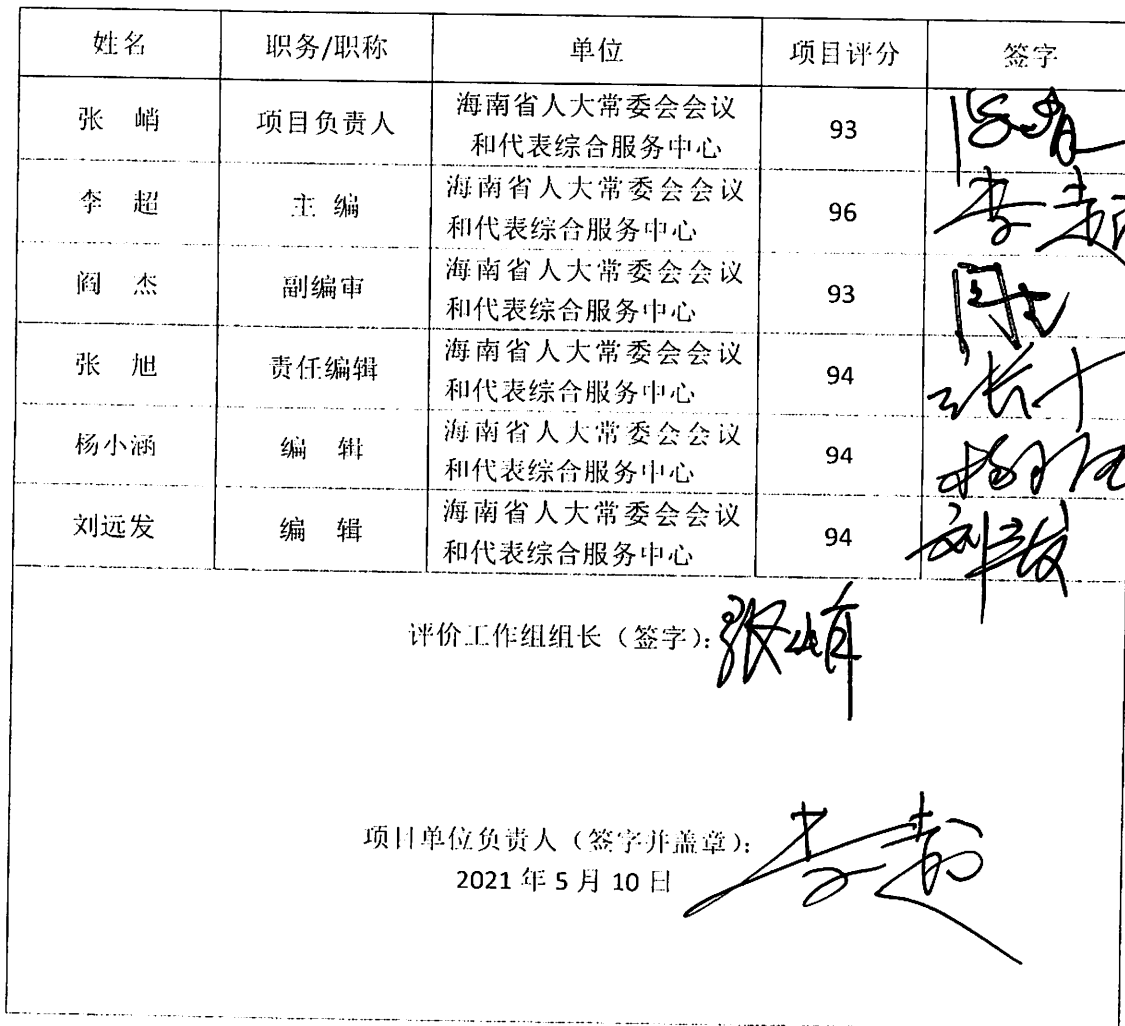 姓名 职务/职称 单位 项目评分 签字
张 峭 项目负责人 海南省人大常委会会议 93
和代表综合服务中心
李 超 主 编 海南省人大常委会会议 96 李超
和代表综合服务中心
阎 杰 副编审 海南省人大常委会会议 93
和代表综合服务中心
张 旭 责任编辑 海南省人大常委会会议 94
和代表综合服务中心
杨小涵 编 辑 海南省人大常委会会议 94
和代表综合服务中心
刘远发 编 辑 海南省人大常委会会议 94 刘远发
和代表综合服务中心
评价工作组组长（签字）：张峭
项目单位负责人（签字并盖章）：李超
2021 年 5 月 10 日